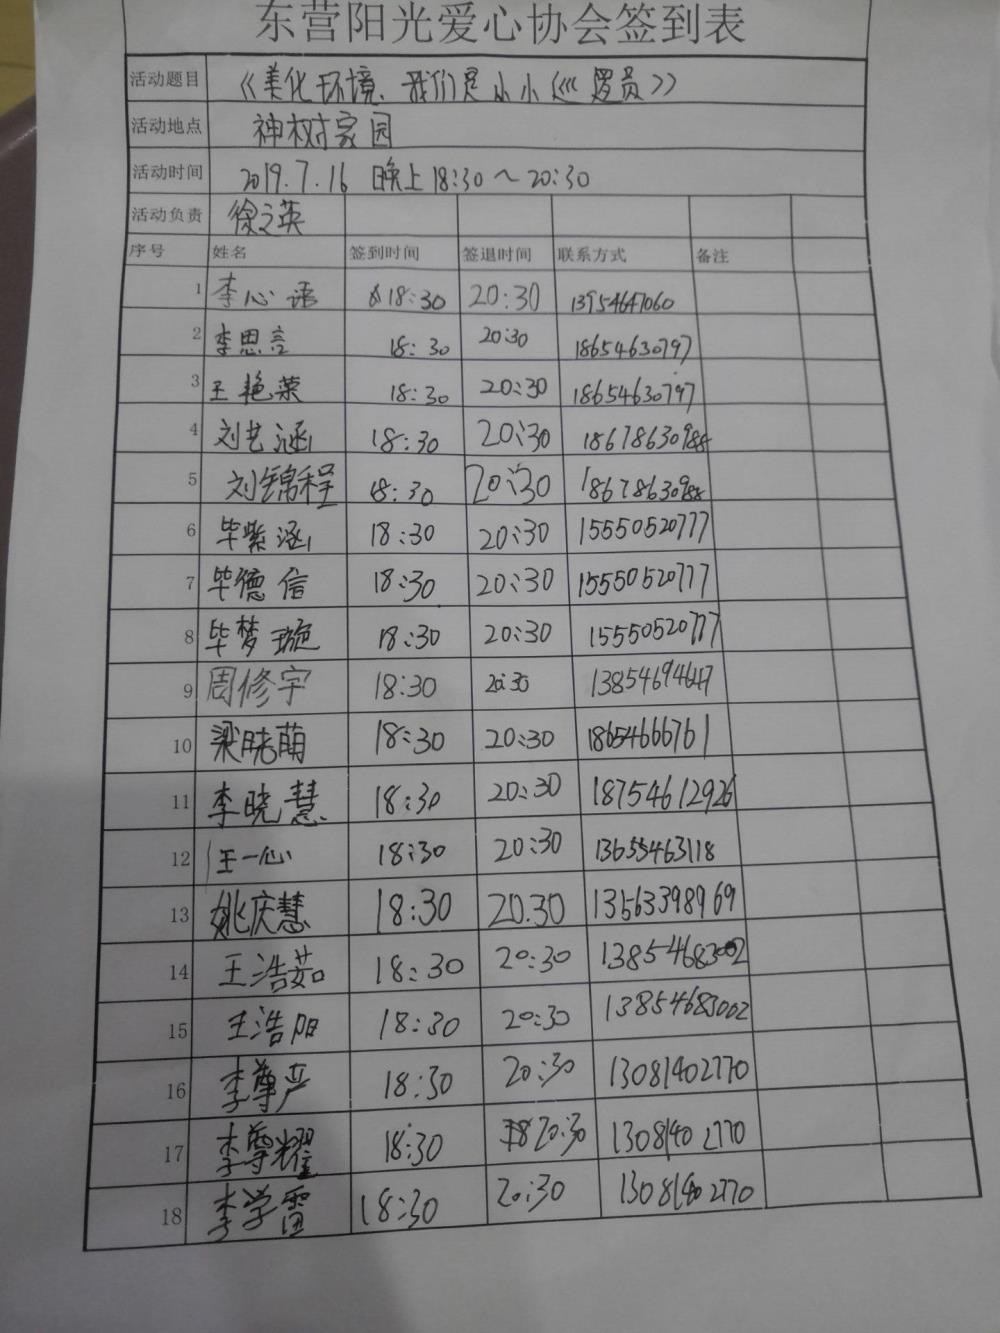 东营阳光爱心协会签到表
活动题目 《美化环境、我们是小小 员》
活动地点 神树家园
活动时间 2019.7.16 晚上18:30～20:30
活动负责 徐之英
序号 姓名 签到时间 签退时间 联系方式 备注
1 李心语 18:30 20:30 13954641060
2 李思言 18:30 20:30 18654630797
3 王艳荣 18:30 20:30 18654630797
4 刘艺涵 18:30 20:30 18678630988
5 刘锦程 18:30 20:30 18678630988
6 毕紫涵 18:30 20:30 15550520777
7 毕德信 18:30 20:30 15550520777
8 毕梦璇 18:30 20:30 15550520777
9 周修宇 18:30 20:30
10 梁晓萌 18:30 20:30 18654666761
11 李晓慧 18:30 20:30 18754612926
12 王一心 18:30 20:30 13655463118
13 姚庆慧 18:30 20.30 13563398969
14 王浩茹 18:30 20:30 13854683002
15 王浩阳 18:30 20:30 13854683002
16 李尊严 18:30 20:30 13081402770
17 李尊耀 18:30 20:30 13081402770
18 李学雷 18:30 20:30 13081402770